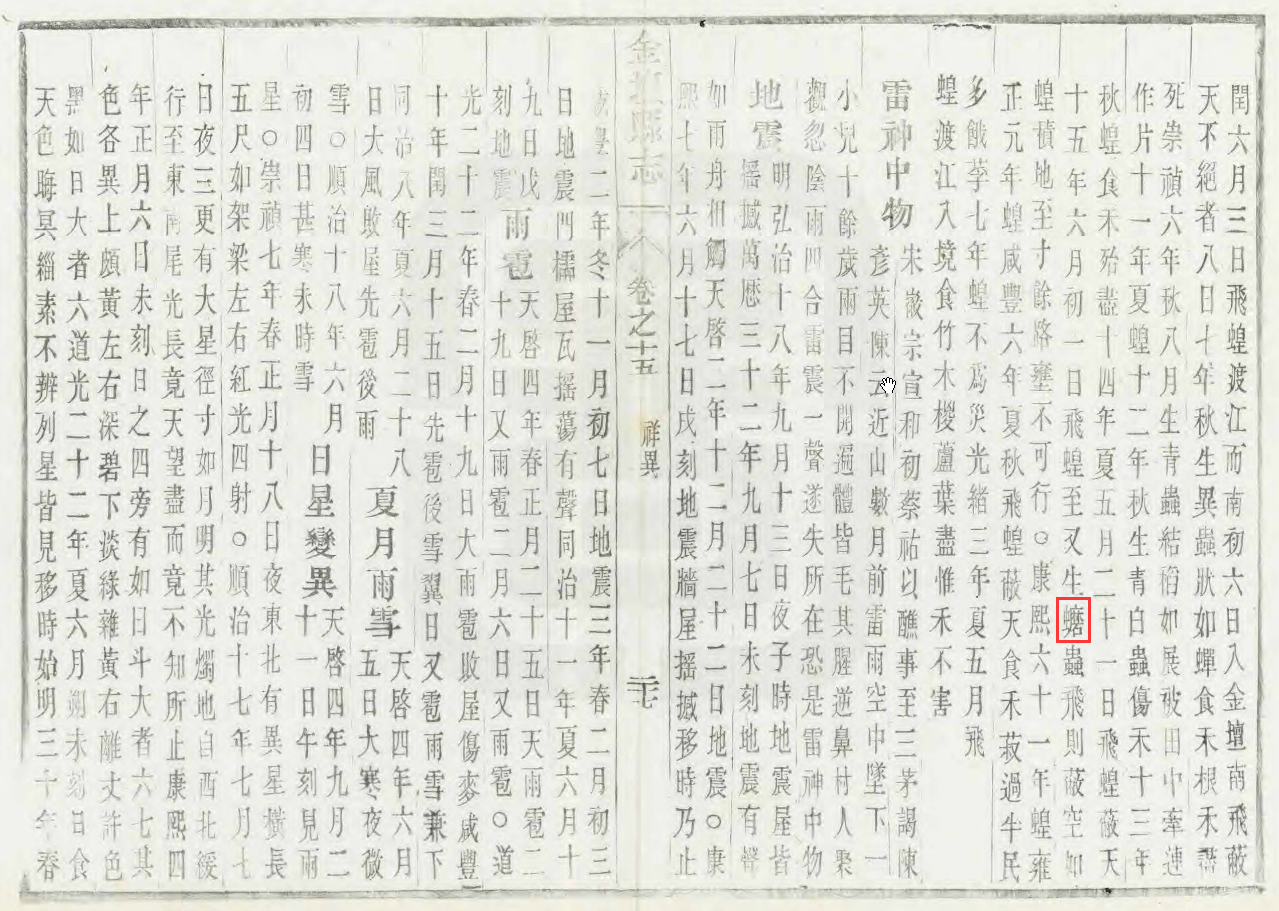 閏六月三日飛蝗渡江而南初六日入金壇南飛蔽
天不絕者八日七年秋生異蟲狀如蟬食禾根禾
死崇禎六年秋八月生青蟲結稻如展被田中牽連
作片十一年夏蝗十二年秋生青白蟲傷禾十三年
秋蝗食禾殆盡十四年夏五月二十一日飛蝗蔽天
十五年六月初一日飛蝗至又生蟲飛則蔽空如
蝗積地至寸餘路壅不可行○康熙六十一年蝗雍
正元年蝗咸豐六年夏秋飛蝗蔽天食禾菽過半民
多餓莩七年蝗不爲災光緒三年夏五月飛
蝗渡江入境食竹木椶蘆葉盡惟禾不害
雷神中物
宋徽宗宣和初蔡祐以醮事至三茅謁陳
彥英陳云近山數月前雷雨空中墜下一
小兒十餘歲兩目不開遍體皆毛其腥逆鼻村人聚
觀忽陰雨四合雷震一聲遂失所在恐是雷神中物
地震
明弘治十八年九月十三日夜子時地震屋皆
搖撼萬曆三十二年九月七日未刻地震有聲
如兩舟相觸天啓二年十二月二十二日地震○康
熙七年六月十七日戌刻地震牆屋搖撼移時乃止
金壇縣志
卷之十五
祥異
二十七
咸豐二年冬十一月初七日地震三年春二月初三
日地震門櫺屋瓦搖蕩有聲同治十一年夏六月十
九日戊刻地震
雨雹
天啓四年春正月二十五日天雨雹二
十九日又雨雹二月六日又雨雹○道
光二十二年春二月十九日大雨雹敗屋傷麥咸豐
十年閏三月十五日先雹後雪翼日又雹雨雪兼下
同治八年夏六月二十八
日大風敗屋先雹後雨
夏月雨雪
天啓四年六月
五日大寒夜微
雪○順治十八年六月
初四日甚寒未時雪
日星變異
天啓四年九月二
十一日午刻見兩
星○崇禎七年春正月十八日夜東北有異星橫長
五尺如架梁左右紅光四射○順治十七年七月七
日夜三更有大星徑寸如月明其光燭地自西北綏
行至東南尾光長竟天望盡而竟不知所止康熙四
年正月六日未刻日之四旁有如日斗大者六七其
色各異上頗黃左右深碧下淡綠雜黃右離丈許色
黑如日大者六道光二十二年夏六月朔未刻日食
天色晦冥緇素不辨列星皆見移時始明三十年春